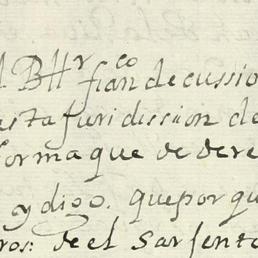 l BHr. fianco de cussio
asta juridiscion de
forma que de dere
y digo. que por qu
ros: de el Sarjento